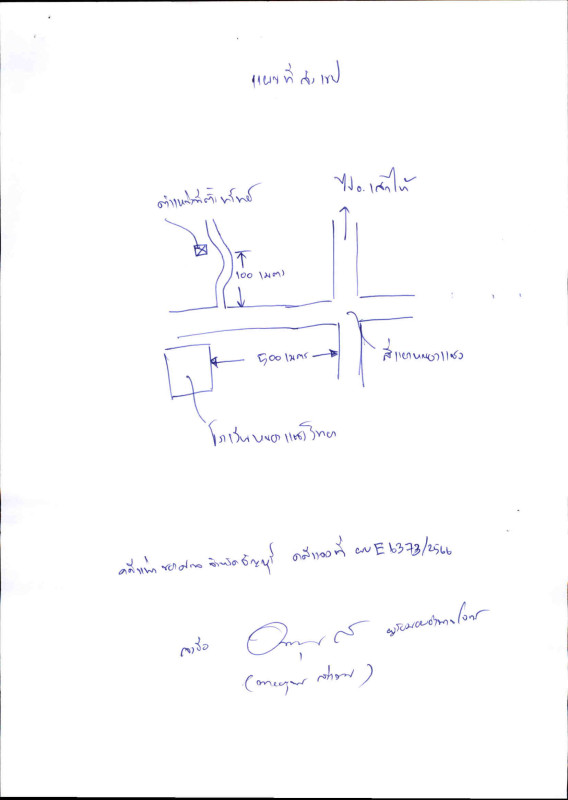 แผนที่สังเขป
ไป อ.เสาไห้
ตำแหน่งที่ตั้งทรัพย์
100 เมตร
500 เมตร
สี่แยกหนองแซง
โรงเรียนหนองแซงวิทยา
คดีแพ่ง ศาล จังหวัด คดีแดงที่ ผบ E 6373/2566
ลงชื่อ ผู้รับมอบอำนาจโจทก์